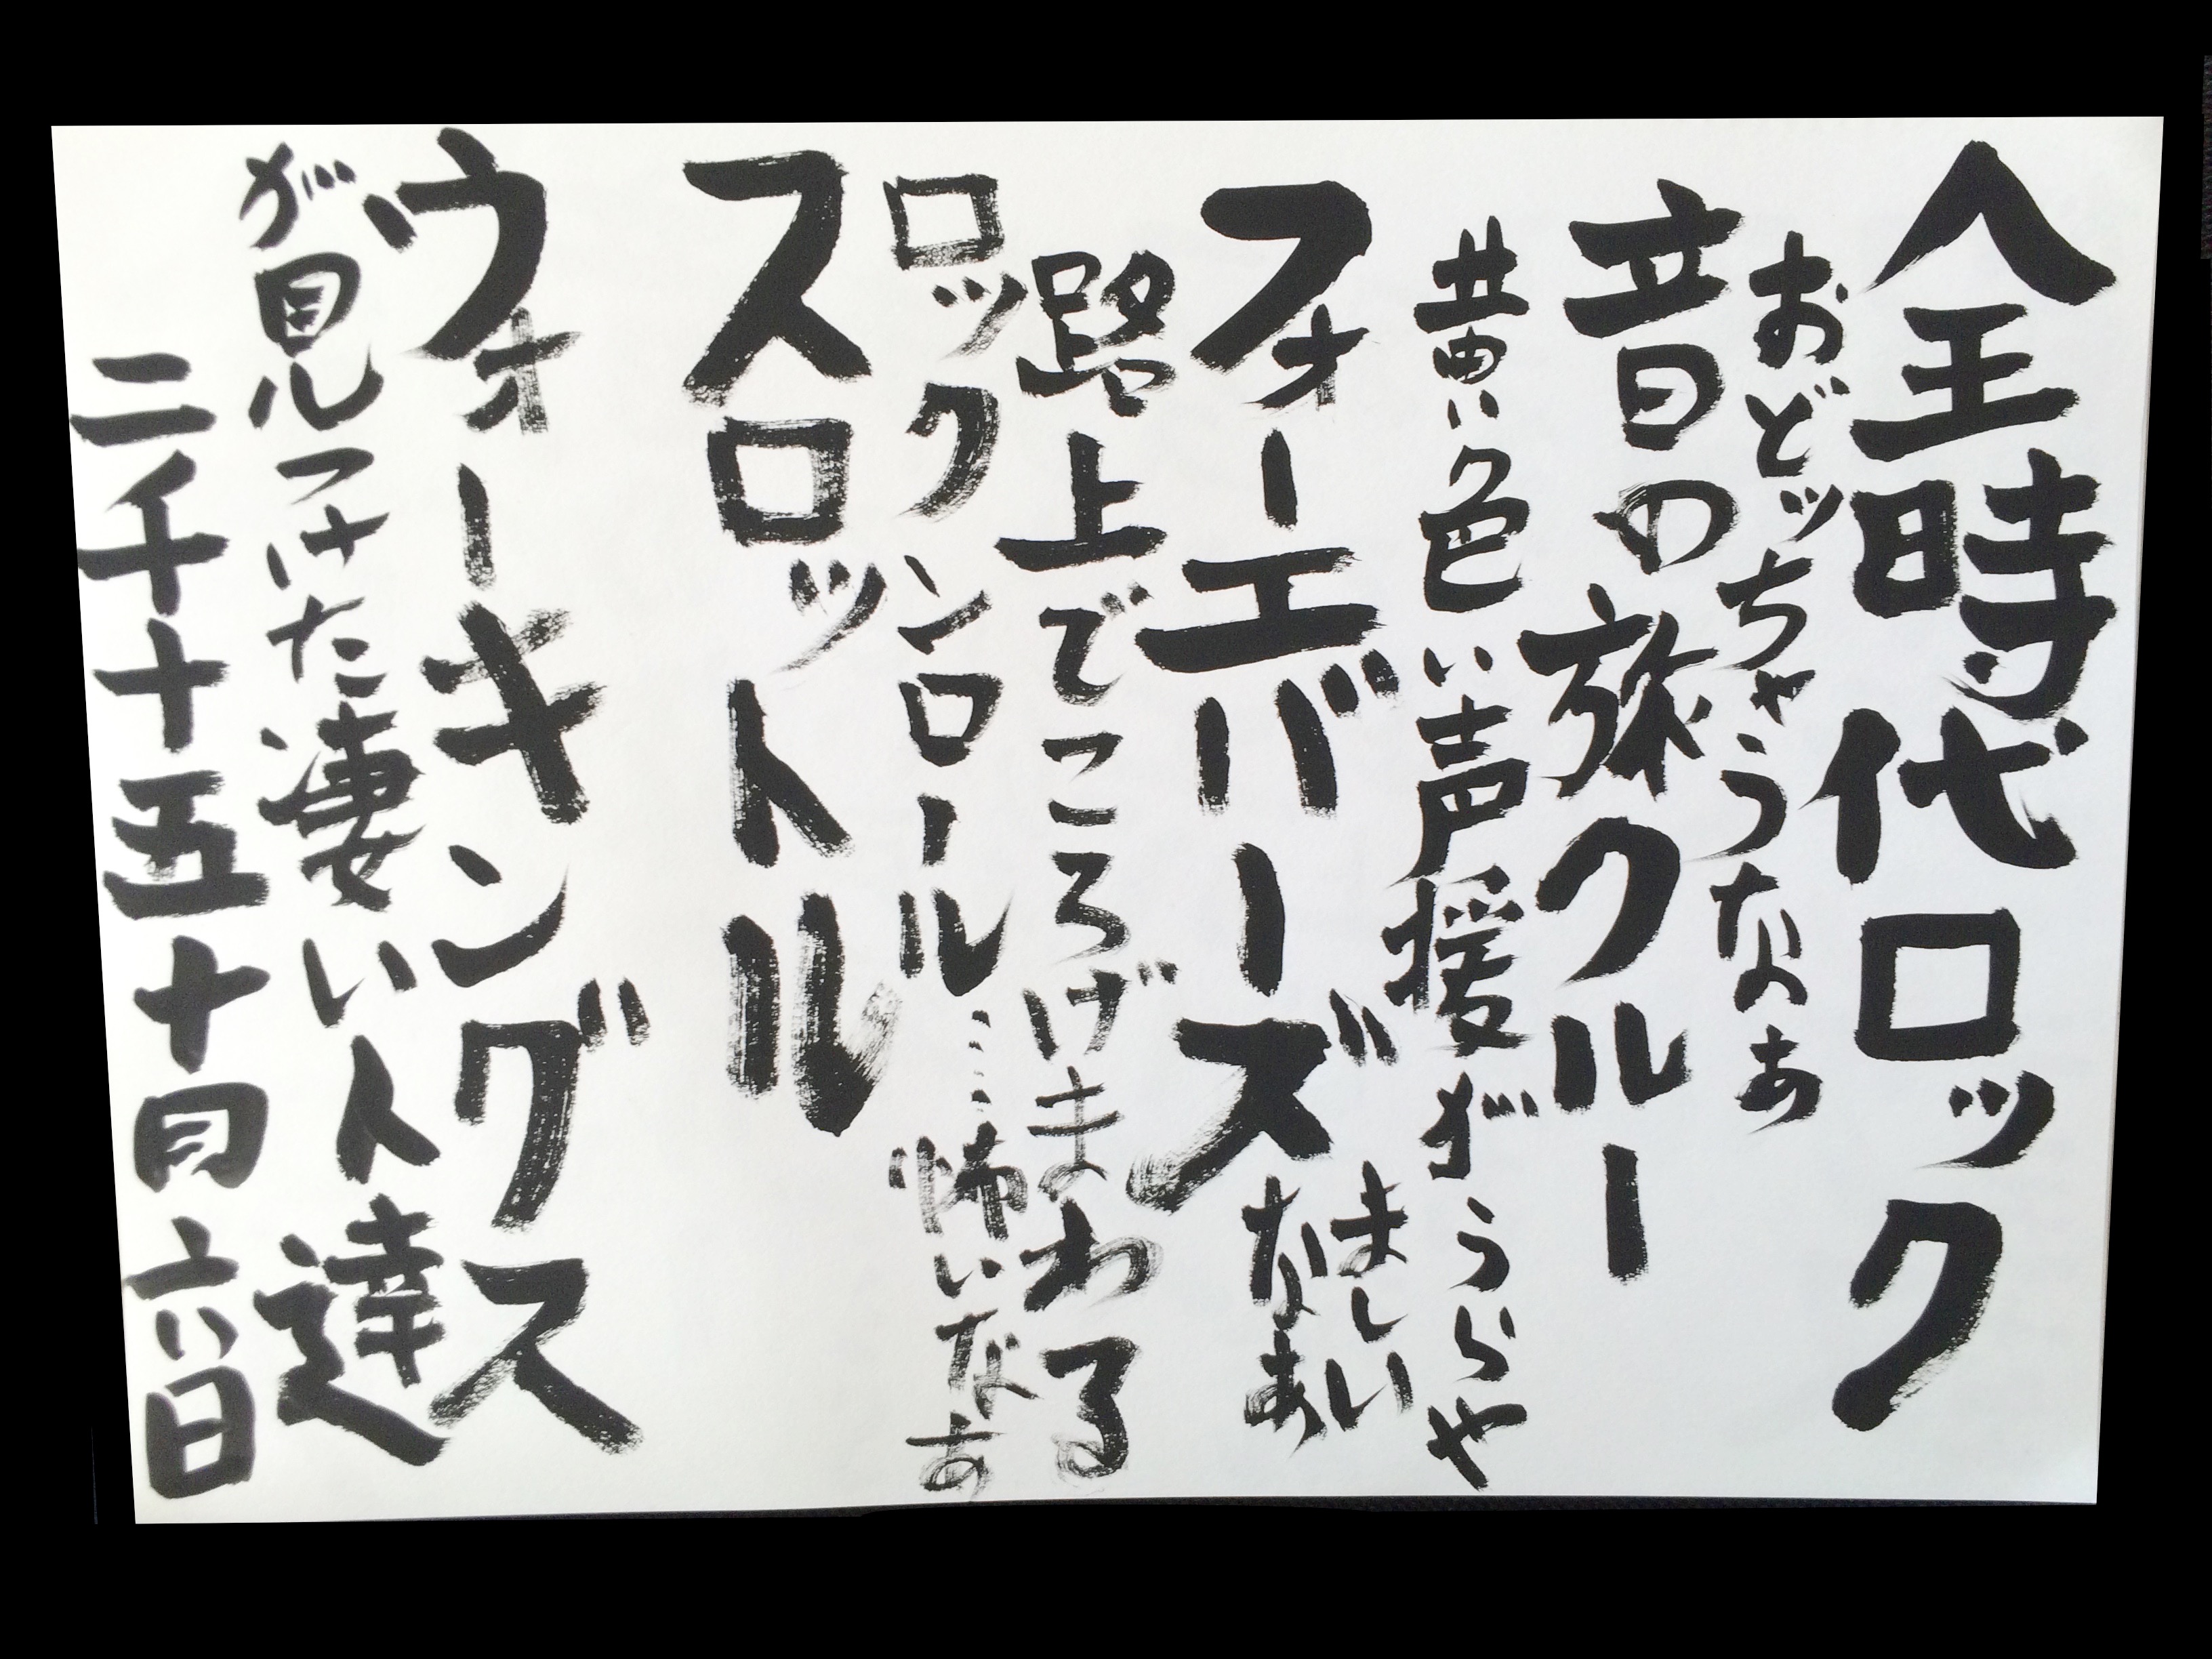 全時代ロック
おどッちゃうなぁ
音の旅クルー
黄色い声援がうらや
ましい
なぁ
フォーエバーズ
路上でころげまわる
ロックンロール……怖いなあ
スロットル
ウォーキングス
が見つけた凄い人達
二千十五十月六日